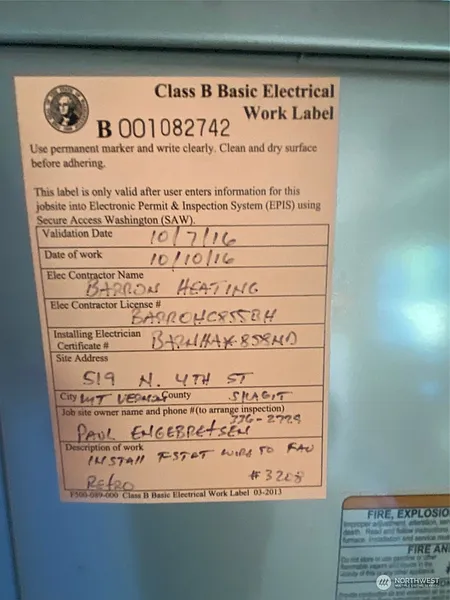 Class B Basic Electrical
Work Label
B 001082742
Use permanent marker and write clearly. Clean and dry surface
before adhering.
This label is only valid after user enters information for this
jobsite into Electronic Permit & Inspection System (EPIS) using
Secure Access Washington (SAW).
Validation Date 10/7/16
Date of work 10/10/16
Elec Contractor Name
BARRON HEATING
Elec Contractor License #
BARROHC855BH
Installing Electrician
Certificate # BARNHAX858MD
Site Address
519 N. 4TH ST
City MT VERNON County SKAGIT
Job site owner name and phone # (to arrange inspection)
336-2729
PAUL ENGEBRETSEN
Description of work
INSTALL T-STAT WIRE TO FAU
RETRO #3208
F500-089-000 Class B Basic Electrical Work Label 03-2013
FIRE, EXPLOSIO
Improper adjustment, alteration, ser
FIRE AN
NORTHWEST